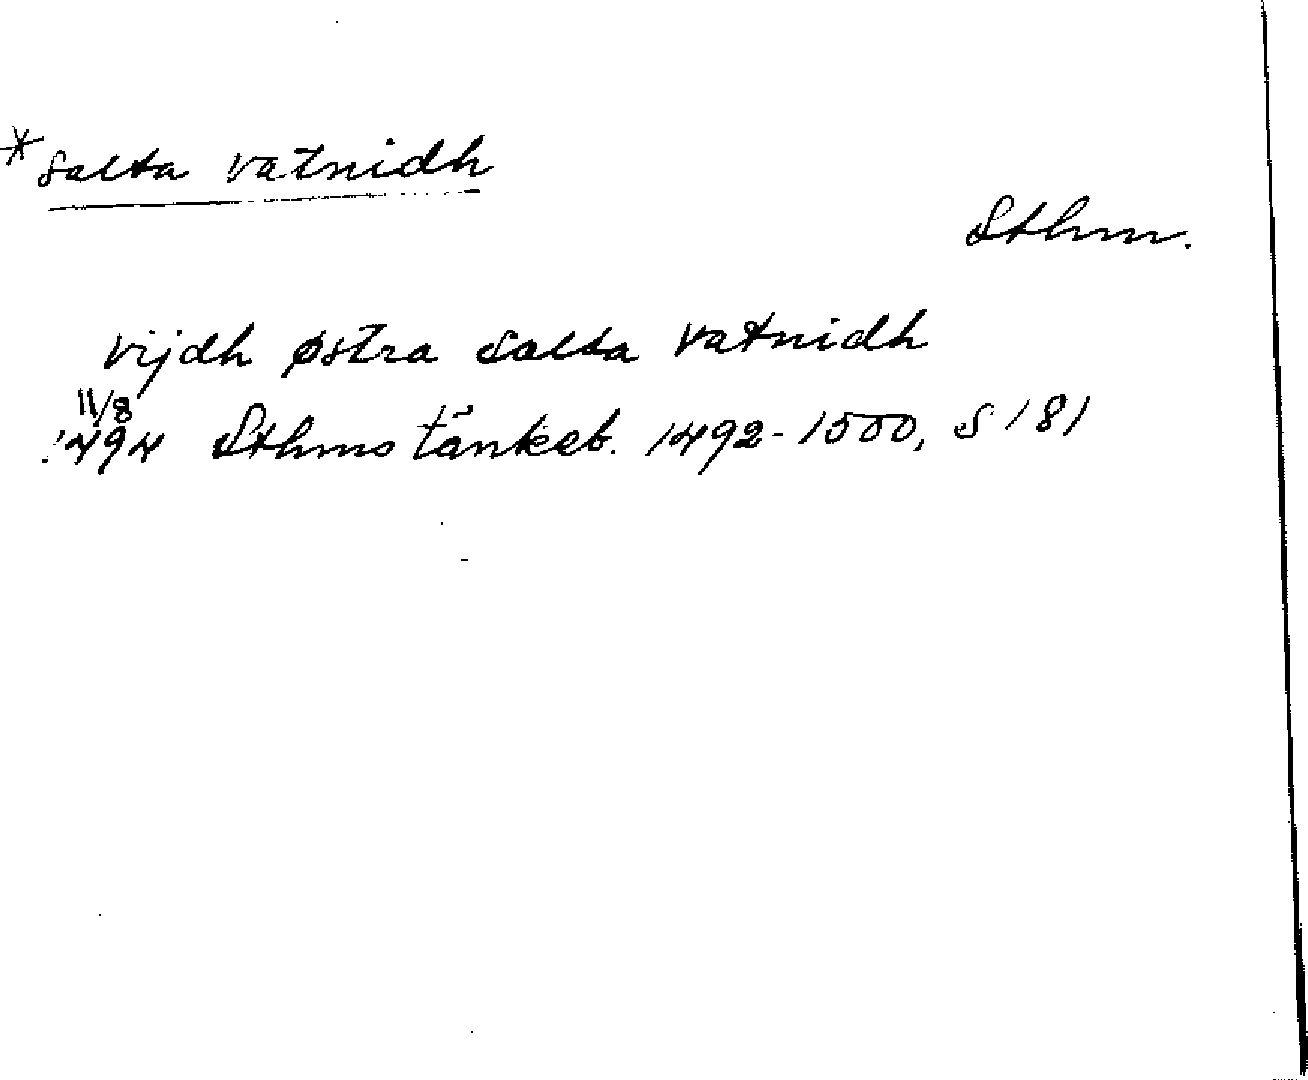 *salta vatnidh
Sthm.
vijdh østra salta vatnidh
11/8
1494 Sthms tänkeb. 1492-1500, s 181